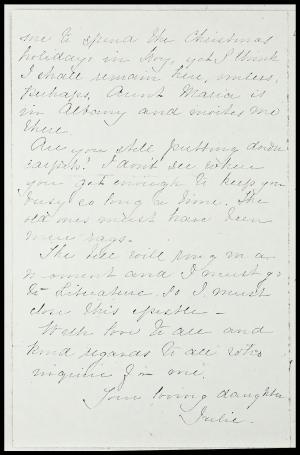 me to spend the Christmas
holidays in Troy, yet I think
I shall remain here, unless,
perhaps, Aunt Maria is
in Albany and invites me
there.
Are you still putting down
carpets? I don't see where
you get enough to keep you
busy so long a time. The
old ones must have been
mere rags.
The bell will ring in a
moment and I must go
to Literature. So I must
close this epistle –
With love to all and
kind regards to all who
inquire for me.
Your loving daughter
Julie.